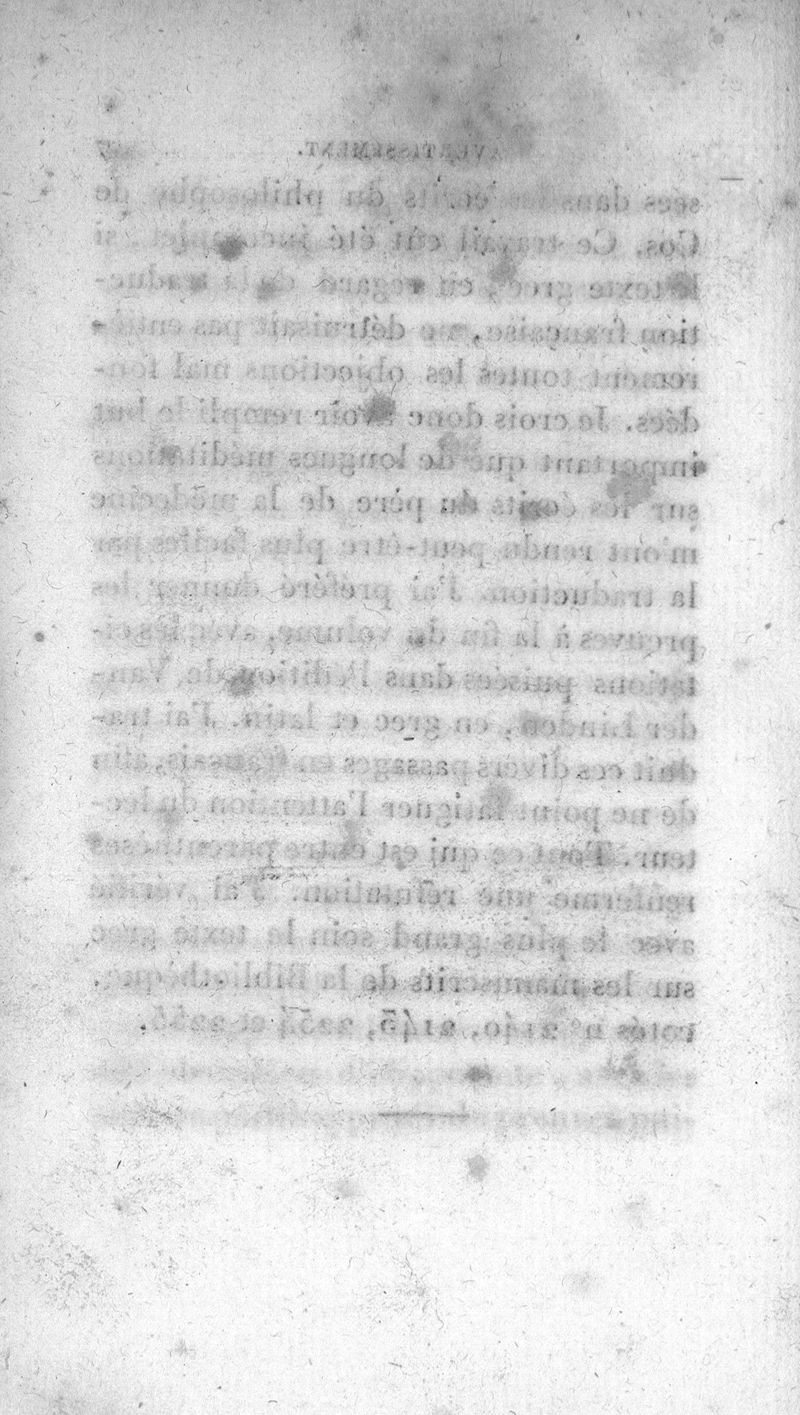 AVERTISSEMENT. 7
sées dans les écrits du philosophe de
Cos. Ce travail eût été incomplet, si
le texte grec, en regard de la traduc-
tion française, ne détruisait pas entiè-
rement toutes les objections mal fon-
dées. Je crois donc avoir rempli le but
important que de longues méditations
sur les écrits du père de la médecine
m'ont rendu peut-être plus faciles par
la traduction. J'ai préféré donner les
preuves à la fin du volume, avec les ci-
tations puisées dans l'édition de Van-
der Linden, en grec et latin. J'ai tra-
duit ces divers passages en français, afin
de ne point fatiguer l'attention du lec-
teur. Tout ce qui est entre parenthèses
renferme une réfutation. J'ai vérifié
avec le plus grand soin le texte grec
sur les manuscrits de la Bibliothèque,
cotés nos 2140, 2145, 2254 et 2255.